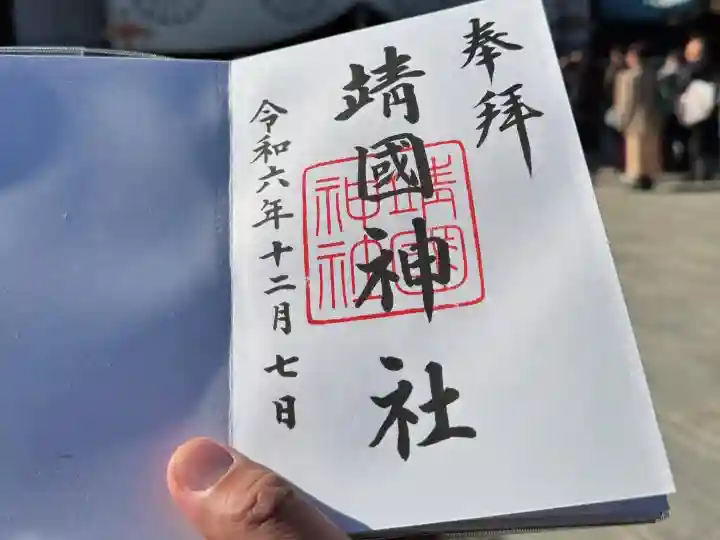 奉拝
靖國神社
靖國
神社
令和六年十二月七日